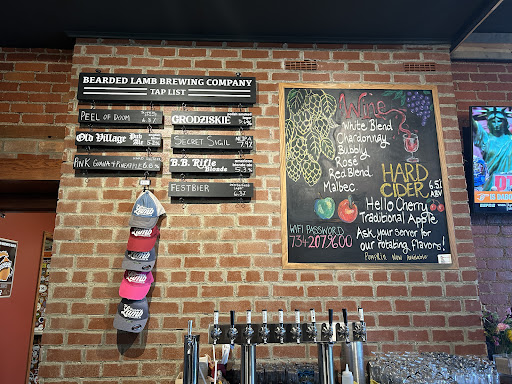 BEARDED LAMB BREWING COMPANY
TAP LIST
PEEL OF DOOM
GRODZISKIE
Old Village Pub Ale
SECRET SIGIL
PINK GUAVA & PINEAPPLE
B.B. Rifle Blonde
5.3%
FESTBIER
Wine
White Blend
Chardonnay
Bubbly
Rosé
Red Blend
Malbec
HARD
CIDER
6.5%
ABV
Hello Cherry
Traditional Apple
WIFI PASSWORD
7342079600
Ask your server for
our rotating flavors!
Pumpkin Now Available